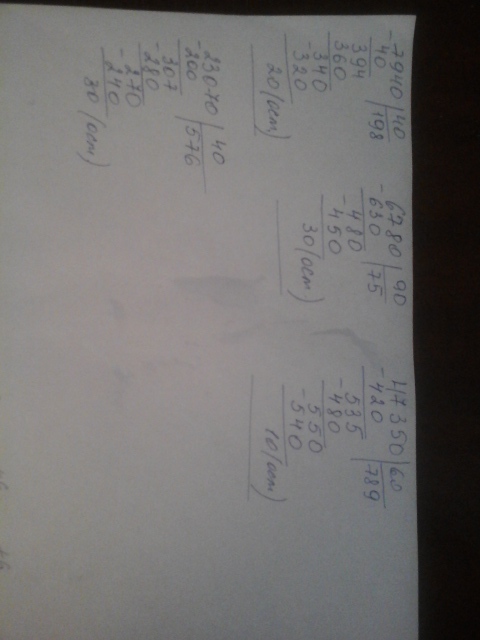 -7940 | 40
40 | 198
394
360
340
-320
20 (ост)
6780 | 90
-630 | 75
480
-450
30 (ост)
47350 | 60
-420 | 789
535
-480
550
-540
10 (ост)
23070 | 40
-200 | 576
307
-280
270
-240
30 (ост)